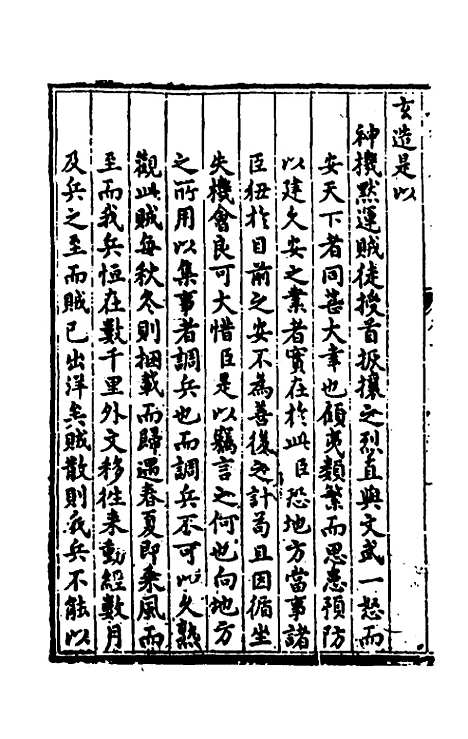 玄造是以
神機默運賊徒授首扳攘之烈直與文武一怒而
安天下者同甚大幸也顧夷類繁而思患預防
以建久安之業者實在於此臣恐地方當事諸
臣狃於目前之安不為善後之計苟且因循坐
失機會良可大惜臣是以竊言之何也向地方
之所用以集事者調兵也而調兵不可以久熟
觀此賊每秋冬則捆載而歸遇春夏即乘風而
至而我兵恒在數千里外文移往来動經數月
及兵之至而賊已出洋矣賊散則我兵不能以